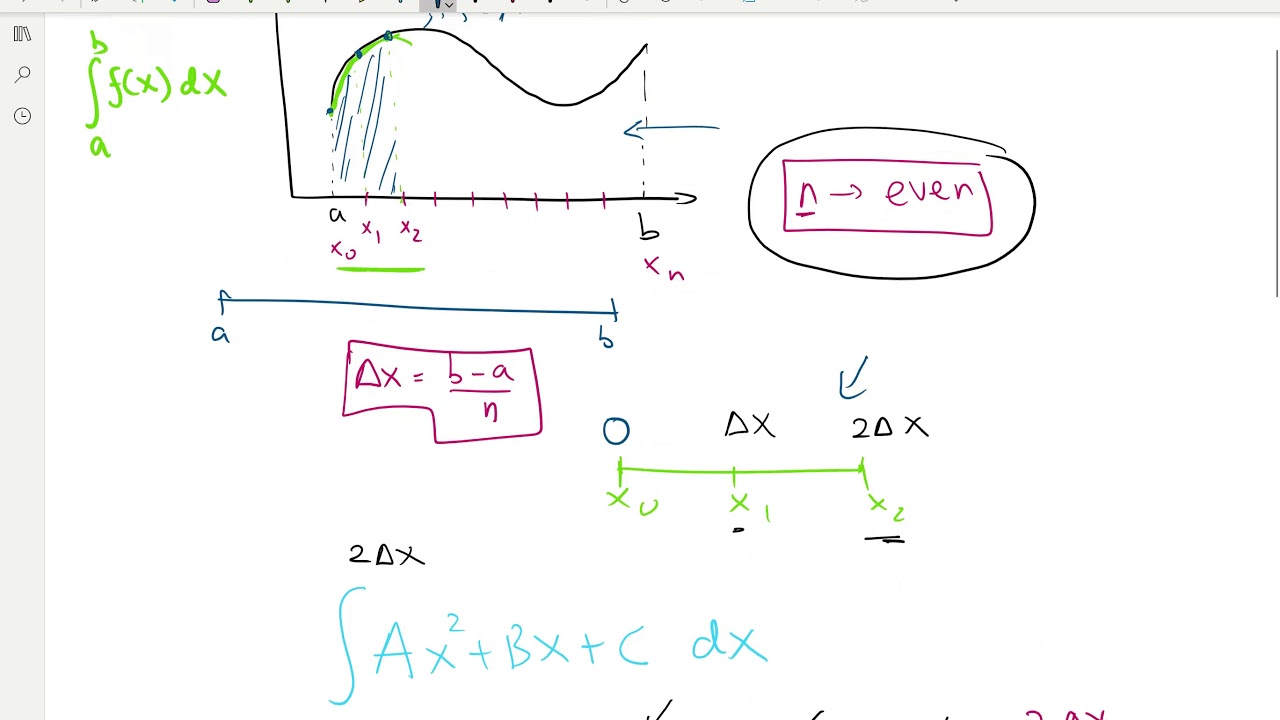 ∫ₐᵇ f(x) dx
a
b
x₀ x₁ x₂
xₙ
n → even
a
b
Δx = (b - a)/n
0 Δx 2Δx
x₀ x₁ x₂
2Δx
∫ Ax² + Bx + C dx